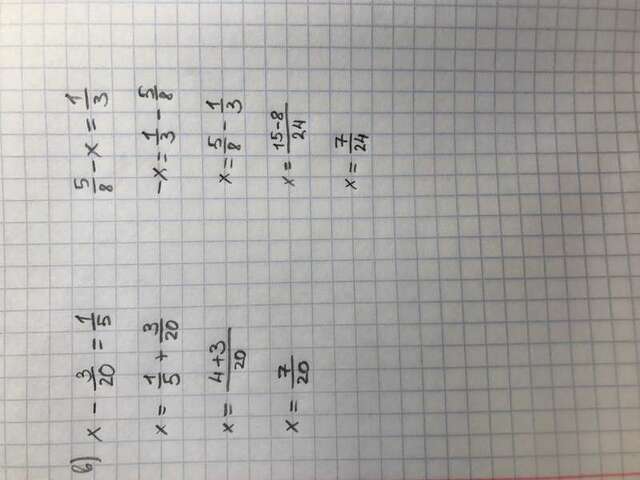 в) x - 3/20 = 1/5
x = 1/5 + 3/20
x = 4+3/20
x = 7/20
5/8 - x = 1/3
-x = 1/3 - 5/8
x = 5/8 - 1/3
x = 15-8/24
x = 7/24